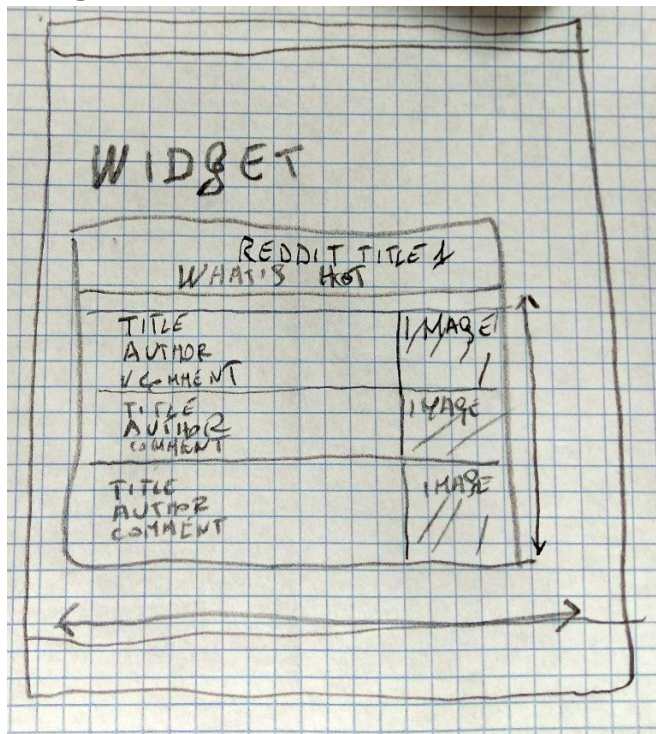 WIDgET
REDDIT TITLE 1
WHAT'S HOT
TITLE
AUTHOR
COMMENT
IMAGE
TITLE
AUTHOR
COMMENT
IMAGE
TITLE
AUTHOR
COMMENT
IMAGE